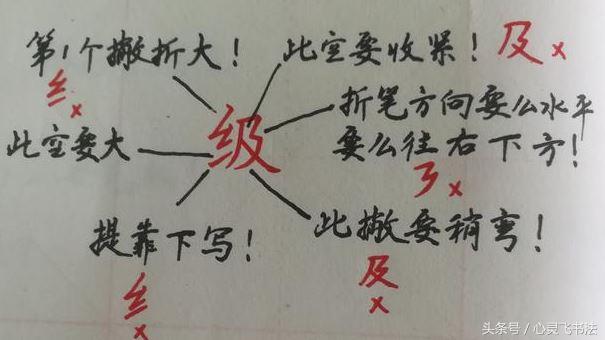 第1个撇折大！
此空要收紧！及×
纟×
折笔方向要么水平
要么往右下方！
此空要大
级
𠄎×
提靠下写！
此撇要稍弯！
纟×
及×
头条号／心灵飞书法